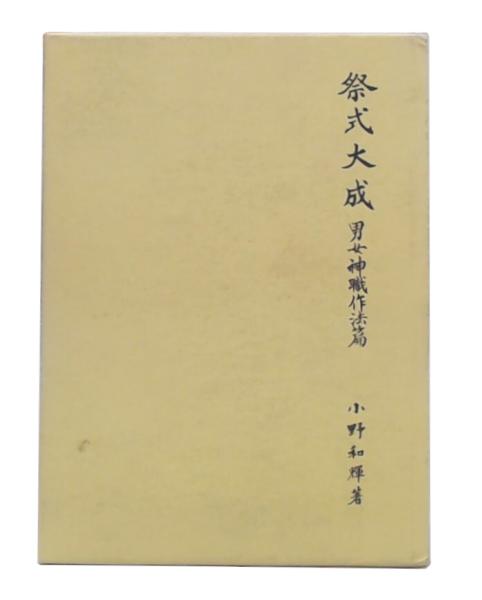 祭式大成 男女神職作法篇 小野和輝著